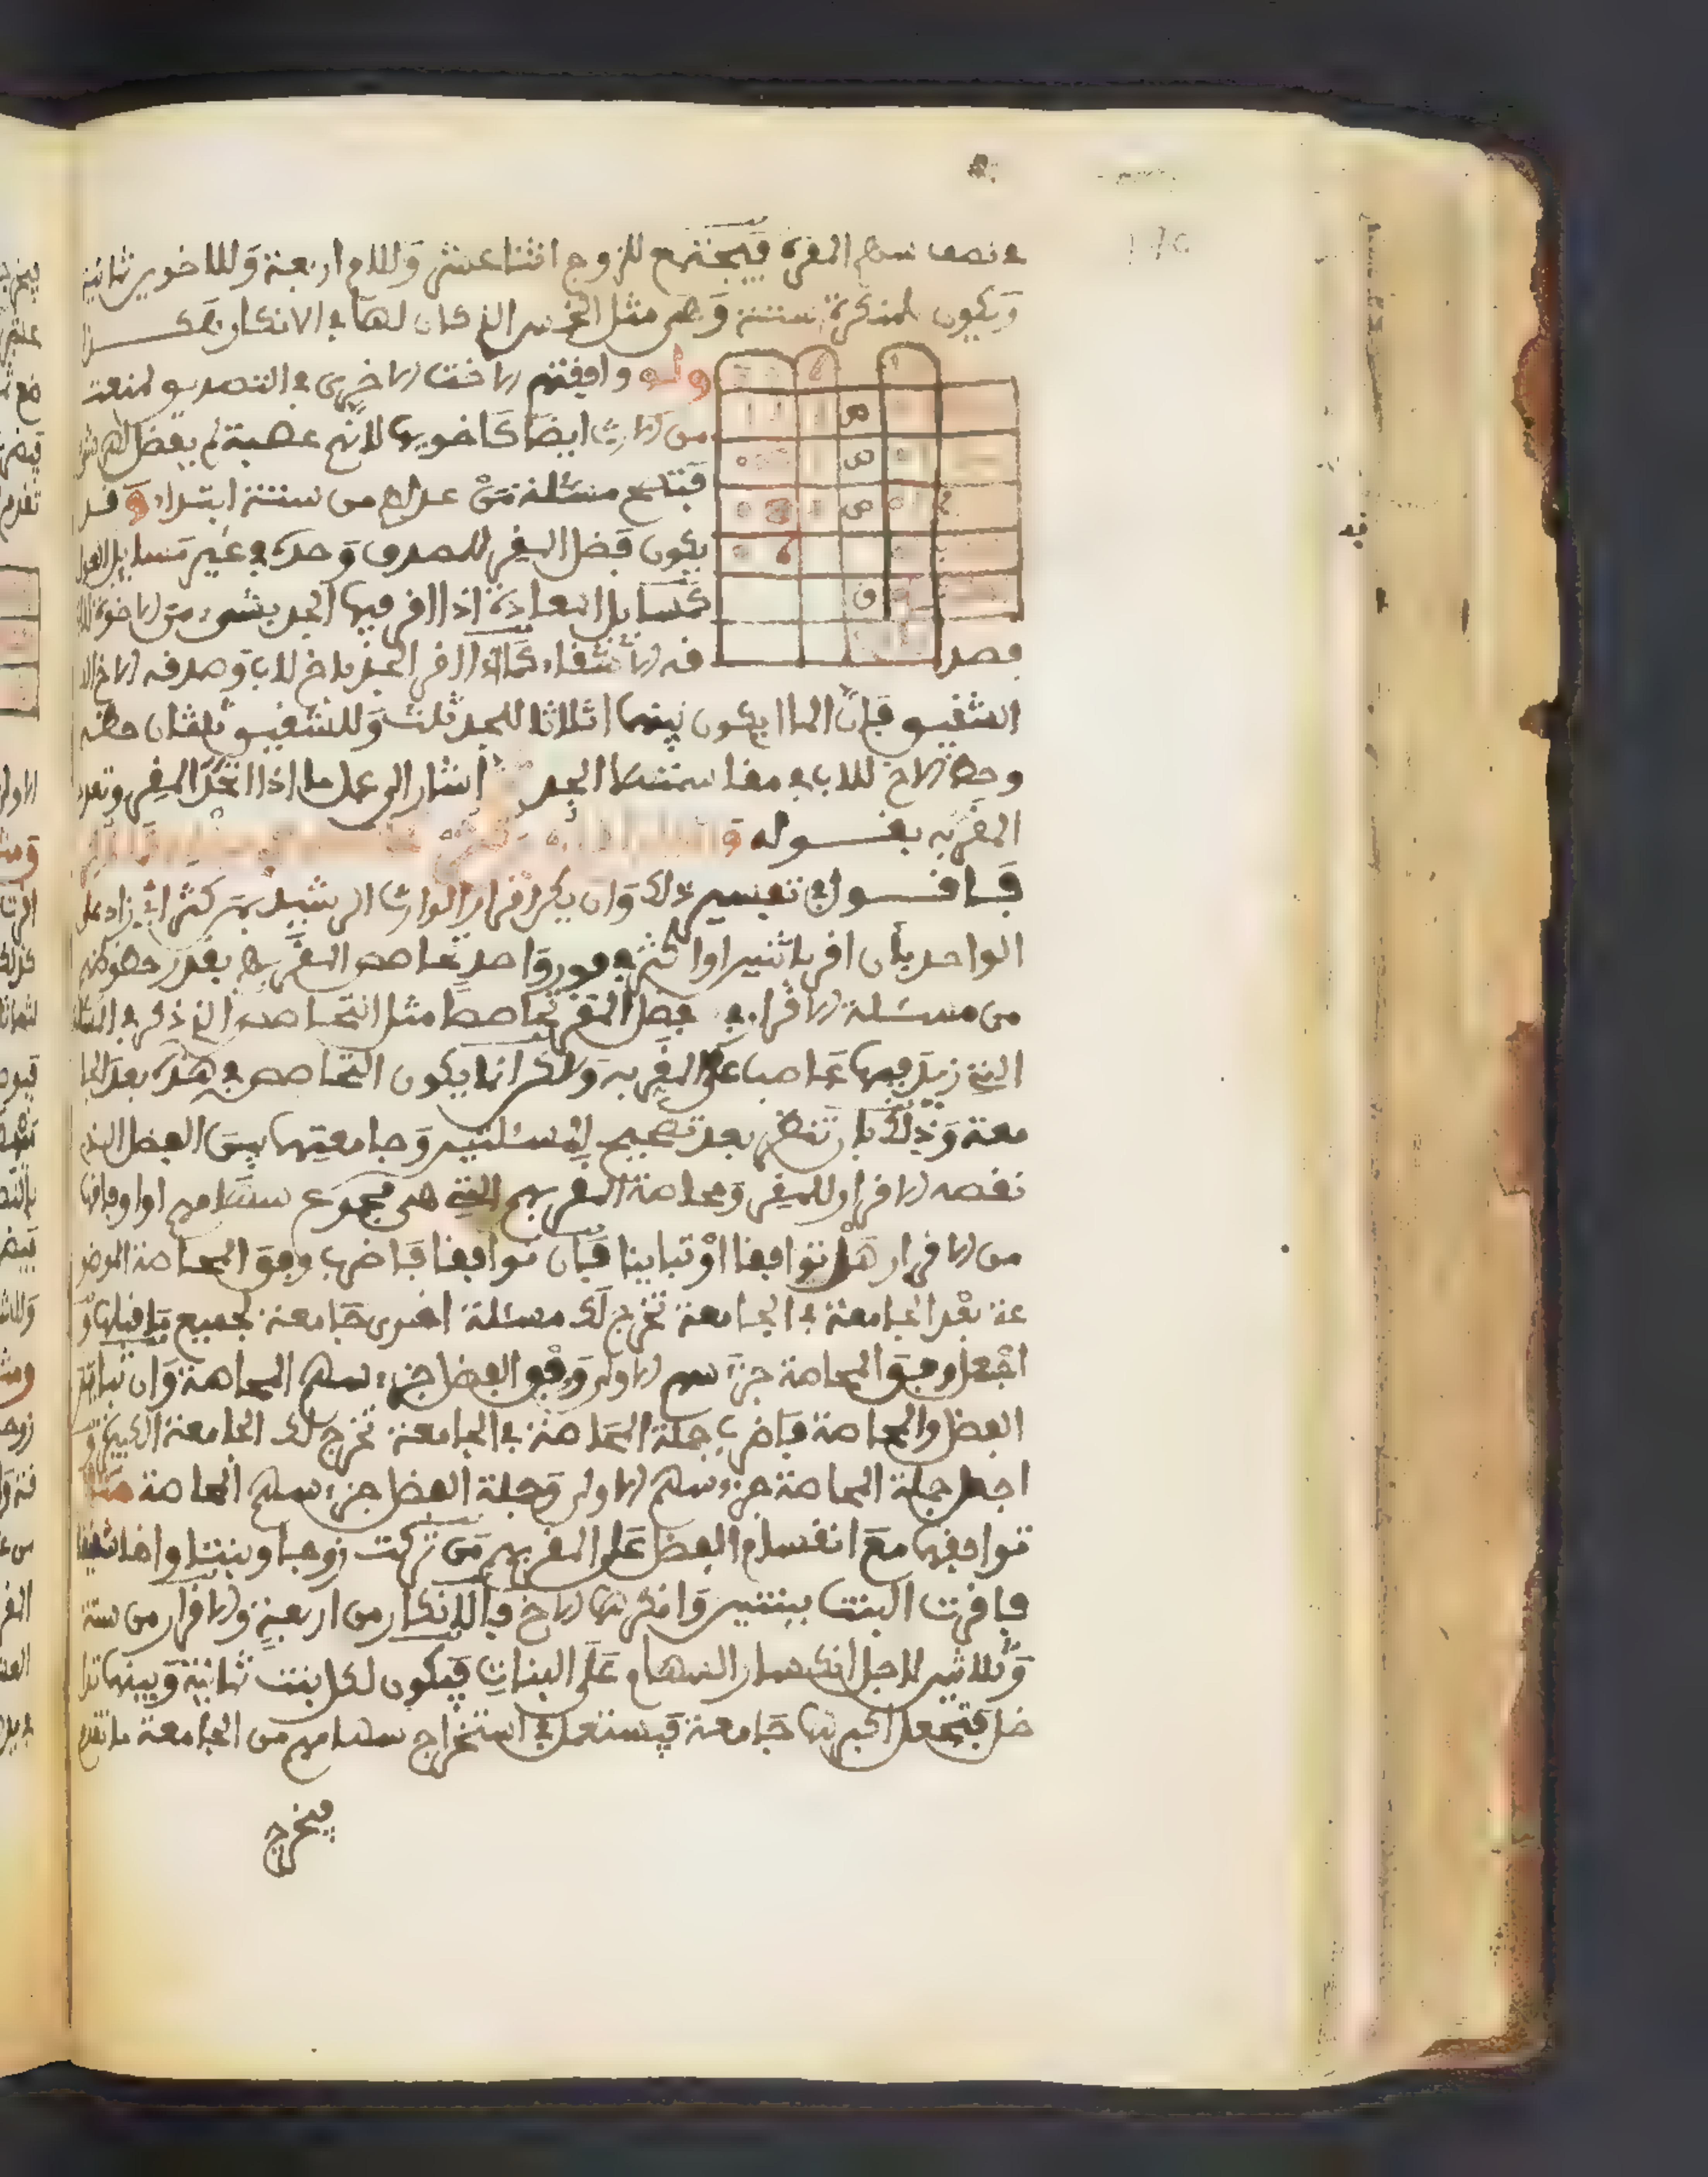 في نصف سهام المقرة فيجتمع للزوج اثنا عشر وللام اربعة وللاخوين ثمانية
ويكون للمنكرة ستة وهي مثل الخمس الذي كان لها في الانكار هكذا
ولو وافقتهم الاخت الاخرى في التصديق لمنعت
من الارث ايضا كاخويها لانهم عصبة لم يفضل لهم شيء
فتصح مسئلة من عدلهم من ستة ابتداء وقد
يكون فضل المقر للمصدق وحده في غير مسايل العول
كمسايل المعادة اذا اقر فيها الجد بشيء من الاخوة للاب
فصد
قه الاشقاء كما اذا اقر الجد باخ للاب وصدقه الاخ
الشقيق فان المال يكون بينهما اثلاثا للجد ثلث وللشقيق ثلثان حظه
وحظ الاخ للاب في مقاسمتهما الجد اشار الى عمل ما اذا اتحد المقر وتعدد
المقر به بقوله
فاقول في تفسير ذلك وان يكن اقرار الوارث الرشيد بمن كثر اي زاد على
الواحد بأن اقر باثنين او اكثر في فور واحد تحاصص المقر بهم بقدر حظوظهم
من مسئلة الاقرار في فضل المقر تحاصصا مثل التحاصص الذي ذكر في المسئلة
التي زيد فيها عاصب على المقر به ولكن انما يكون التحاصص في هذه بعد الجا
معة وذلك بأن تنظر بعد تصحيح المسئلتين وجامعتهما بين الفضل الذي
نقصه الاقرار للمقر ومحاصة المقر بهم التي هي مجموع سهامهم او اوفاقها
من الاقرار هل توافقا او تباينا فان توافقا فاضرب وفق المحاصة الموضو
عة بعد الجامعة في الجامعة تخرج لك مسئلة اخرى جامعة لجميع ما قبلها و
اجعل وفق المحاصة جزء سهم الاولى ووفق الفضل جزء سهم المحاصة وان تباين
الفضل والمحاصة فاضرب جملة المحاصة في الجامعة تخرج لك الجامعة الكبيرة و
اجعل جملة المحاصة جزء سهم الاولى وجملة الفضل جزء سهم المحاصة مثال
توافقها مع انقسام الفضل على المقر بهم من تركت زوجا وبنتا واخا شقيقا
فاقرت البنت ببنتين وانكرهما الاخ فالانكار من اربعة والاقرار من ستة
وثلاثين لاجل انكسار السهام على البنات فيكون لكل بنت ثمانية وبينهما تدا
خل فتجعل اكبرهما جامعة فيستعمل في استخراج سهامهم من الجامعة ما تقدم
فيخرج